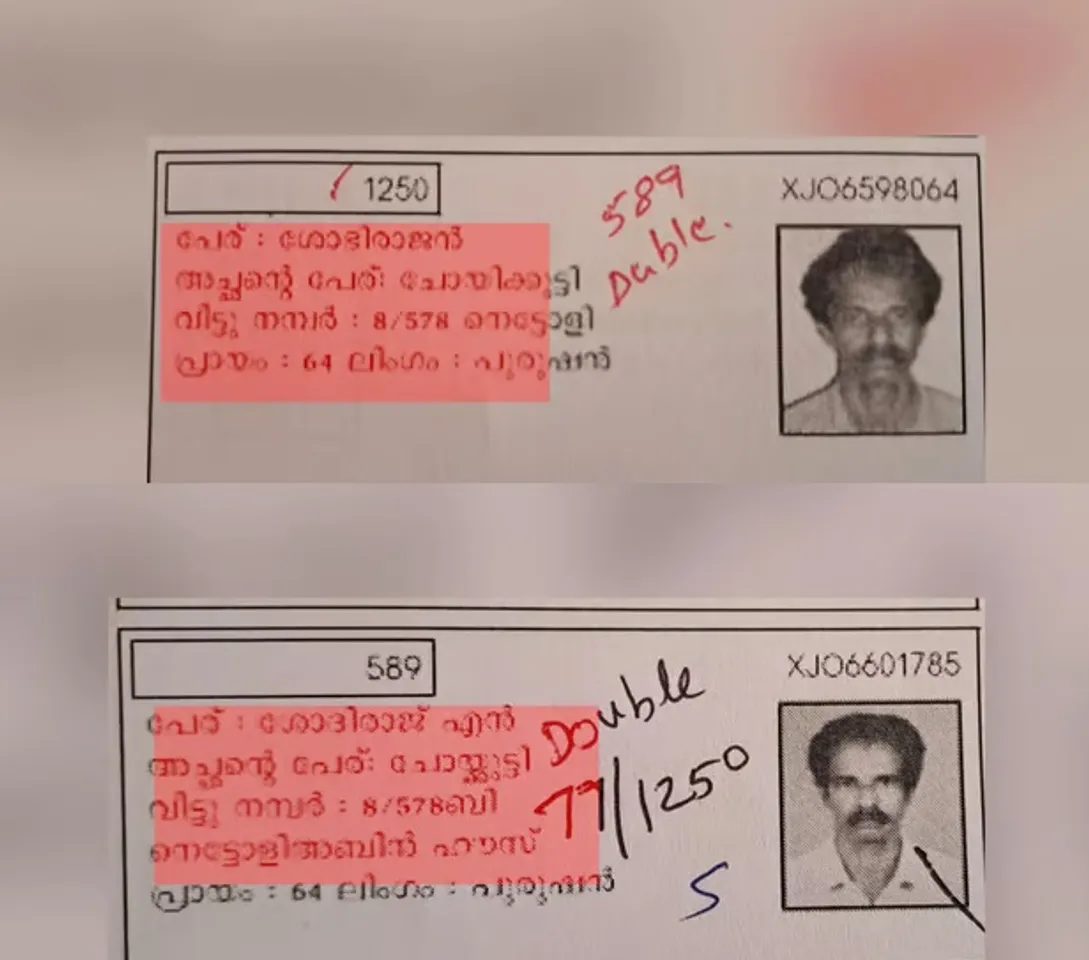 1250
589
Duble.
XJO6598064
പേര് : ശോഭിരാജൻ
അച്ഛന്റെ പേര്: ചോയിക്കുട്ടി
വീട്ടു നമ്പർ : 8/578 നെട്ടോളി
പ്രായം : 64 ലിംഗം : പുരുഷൻ
589
Double
77/1250
XJO6601785
പേര് : ശോഭിരാജ് എൻ
അച്ഛന്റെ പേര്: ചോയ്ക്കുട്ടി
വീട്ടു നമ്പർ : 8/578ബി
നെട്ടോളിഅബിൻ ഹൗസ്
പ്രായം : 64 ലിംഗം : പുരുഷൻ
S